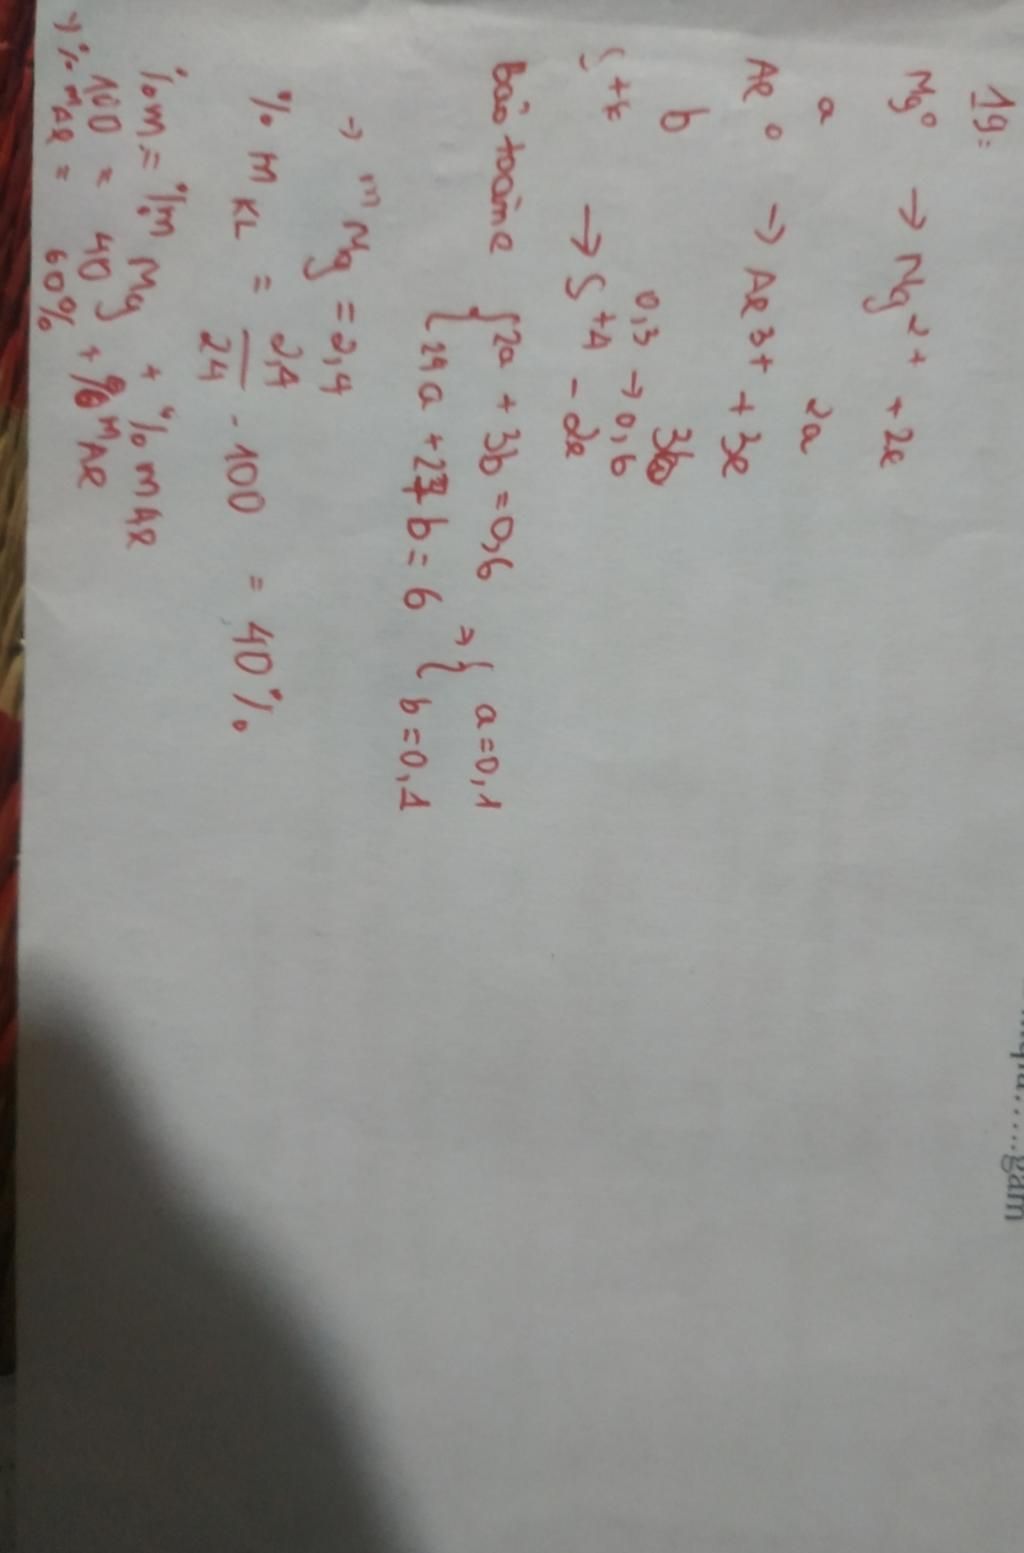 19:
Mg⁰ → Mg²⁺ + 2e
a 2a
Al⁰ → Al³⁺ + 3e
b 3b
0,3 → 0,6
S → S⁺⁴ - 2e
Bảo toàn e { 2a + 3b = 0,6
24a + 27b = 6
=> { a = 0,1
b = 0,1
→ mMg = 2,4
% mKL = 2,4/24 . 100 = 40%
%m = %m Mg + % m Al
100 = 40 + % mAl
→ % mAl = 60%
gam